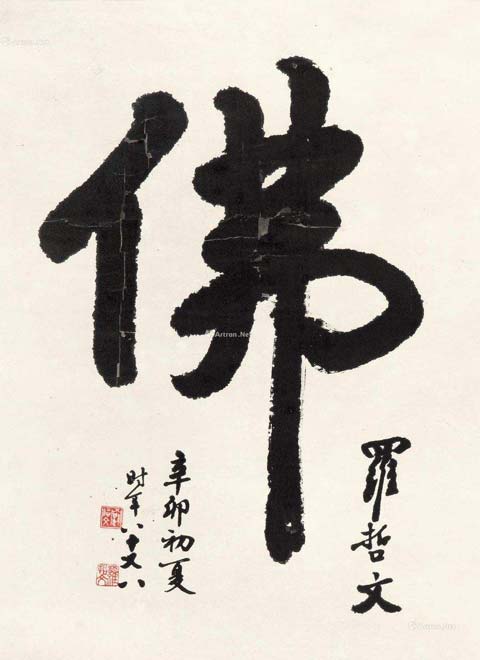 佛
羅哲文
辛卯初夏
时年八十又八
Artron.Net